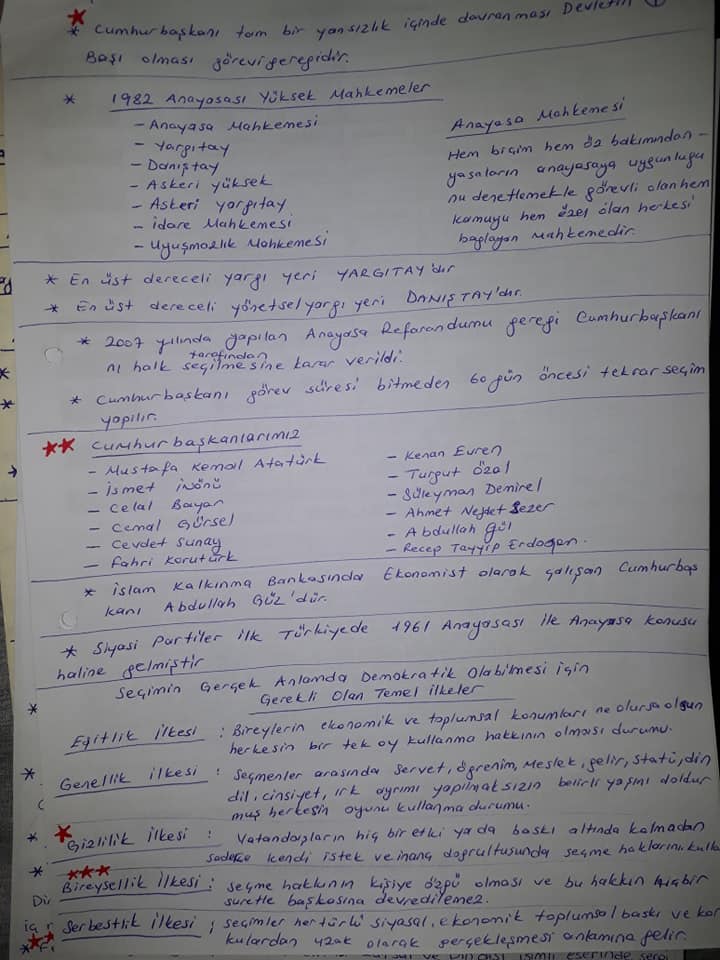 * Cumhurbaşkanı tam bir yansızlık içinde davranması Devletin
Başı olması görevi gereğidir.
* 1982 Anayasası Yüksek Mahkemeler
- Anayasa Mahkemesi
- Yargıtay
- Danıştay
- Askeri yüksek
- Askeri yargıtay
- İdare Mahkemesi
- Uyuşmazlık Mahkemesi
Anayasa Mahkemesi
Hem biçim hem öz bakımından -
yasaların anayasaya uygunluğu
nu denetlemekle görevli olan hem
kamuyu hem özel olan herkesi
bağlayan Mahkemedir.
* En üst dereceli yargı yeri YARGITAY'dır
* En üst dereceli yönetsel yargı yeri DANIŞTAY'dır.
* 2007 yılında yapılan Anayasa Referandumu gereği Cumhurbaşkanı
nı halk tarafından seçilmesine karar verildi.
* Cumhurbaşkanı görev süresi bitmeden 60 gün öncesi tekrar seçim
yapılır.
Cumhurbaşkanlarımız
- Mustafa Kemal Atatürk
- İsmet İnönü
- Celal Bayar
- Cemal Gürsel
- Cevdet Sunay
- Fahri Korutürk
- Kenan Evren
- Turgut Özal
- Süleyman Demirel
- Ahmet Nejdet Sezer
- Abdullah Gül
- Recep Tayyip Erdoğan.
* İslam Kalkınma Bankasında Ekonomist olarak çalışan Cumhurbaş
kanı Abdullah GÜL'dür.
* Siyasi Partiler ilk Türkiyede 1961 Anayasası ile Anayasa konusu
haline gelmiştir
* Seçimin Gerçek Anlamda Demokratik Olabilmesi için
Gerekli Olan Temel ilkeler
Eşitlik İlkesi : Bireylerin ekonomik ve toplumsal konumları ne olursa olsun
herkesin bir tek oy kullanma hakkının olması durumu.
* Genellik İlkesi : Seçmenler arasında servet, öğrenim, Meslek, gelir, statü, din
dil, cinsiyet, ırk ayrımı yapılmaksızın belirli yaşını doldur
muş herkesin oyunu kullanma durumu.
* Gizlilik İlkesi : Vatandaşların hiç bir etki ya da baskı altında kalmadan
sadece kendi istek ve inanç doğrultusunda seçme haklarını kulla
* Bireysellik İlkesi : seçme hakkının kişiye özgü olması ve bu hakkın hiçbir
suretle başkasına devredilemez.
Serbestlik İlkesi ; seçimler her türlü siyasal, ekonomik toplumsal baskı ve kor
kulardan uzak olarak gerçekleşmesi anlamına gelir.